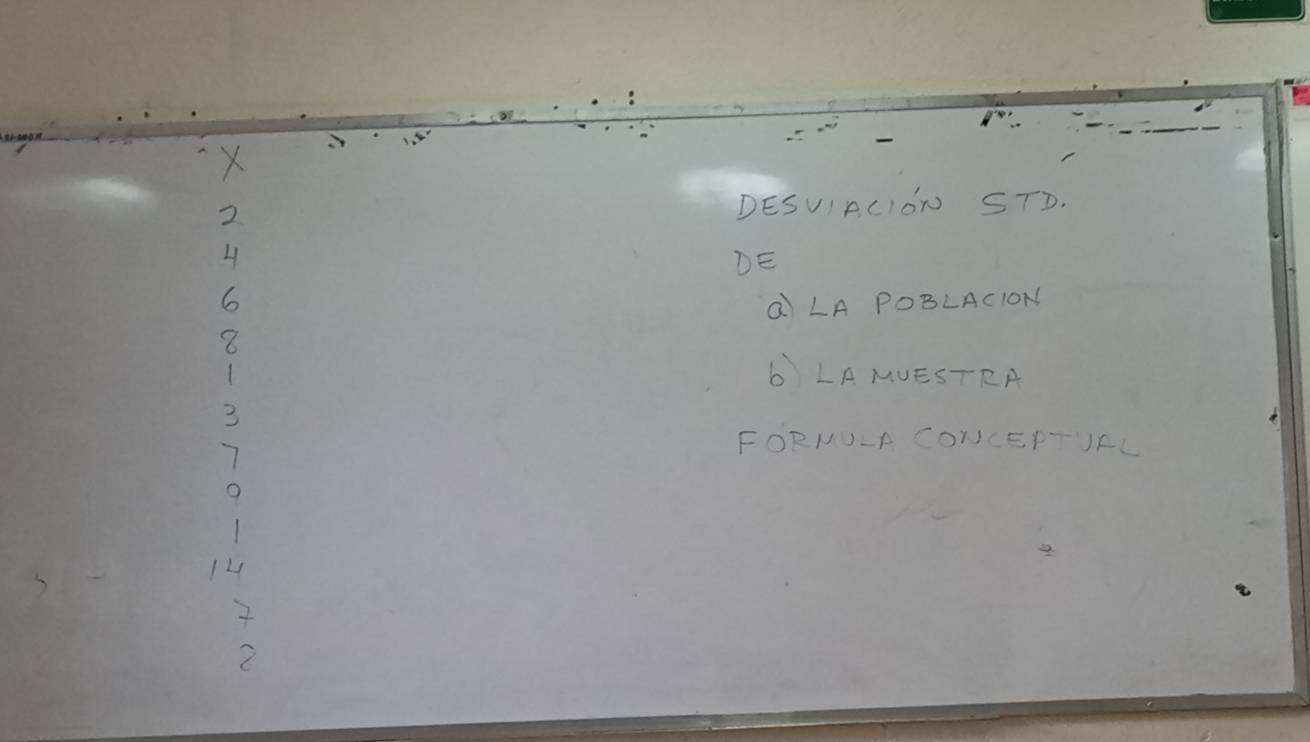 X
2
4
6
8
1
3
7
0
1
14
7
2
DESVIACIÓN STD.
DE
a) LA POBLACION
b) LA MUESTRA
FORMULA CONCEPTUAL